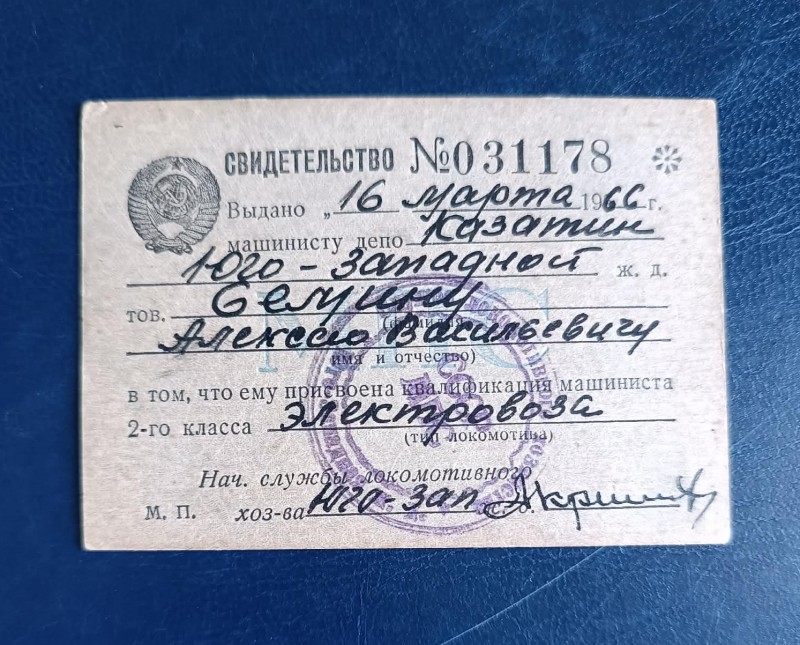 СВИДЕТЕЛЬСТВО №031178
Выдано „16 марта 1966 г.
машинисту депо Казатин
Юго-Западной ж. д.
тов.
(фамилия
Алексею Васильевичу
имя и отчество)
в том, что ему присвоена квалификация машиниста
2-го класса электровоза
(тип локомотива)
Нач. службы локомотивного
М. П. хоз-ва Юго-Зап